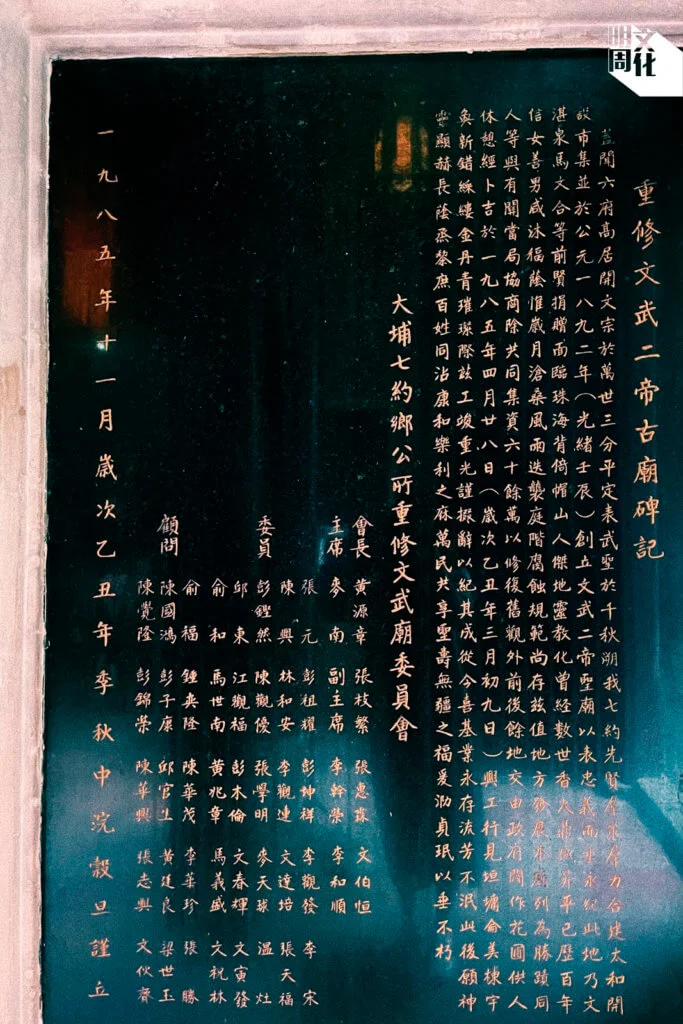 文化
周
重修文武二帝古廟碑記
蓋聞六府高居開文宗於萬世三分平定表武聖於千秋溯我七約先賢羣策羣力合建太和開
設市集並於公元一八九二年（光緒壬辰）創立文武二帝聖廟以表忠義而垂永紀此地乃文
湛泉馬文合等前賢捐贈面臨珠海背倚帽山人傑地靈教化曾經數世香火鼎盛昇平已歷百年
信女善男咸沐福蔭惟歲月滄桑風雨迭襲庭階腐蝕規範尚存茲值地方發展本廟列為勝蹟同
人等與有關當局協商除共同集資六十餘萬以修復舊觀外前後餘地交由政府闢作花園供人
休憩經卜吉於一九八五年四月廿八日（歲次乙丑年三月初九日）興工行見垣墉侖美棟宇
奐新錯綵縷金丹青璀璨際茲工竣重光謹掇辭以紀其成從今喜基業永存流芳不泯此後願神
靈顯赫長蔭烝黎庶百姓同沾康和樂利之庥萬民共享聖壽無疆之福爰泐貞珉以垂不朽
大埔七約鄉公所重修文武廟委員會
會長 黃源章 張枝繁 張惠霖 文伯恒
主席 麥南 副主席 李幹榮 李和順
張元 彭祖耀 彭坤祥 李觀發 李宋
陳興 林和安 李觀連 文達培 張天福
委員 彭鏗然 陳觀優 張學明 麥天球 溫灶
邱東 江觀福 彭木倫 文春輝 文寅發
俞和 馬世南 黃兆章 馬義盛 文祝林
俞福 鍾奕隆 陳華茂 李華珍 張勝
顧問 陳國鴻 彭子康 邱官生 黃廷良 梁世玉
陳覺隆 彭錦榮 陳華興 張志興 文伙齊
一九八五年十一月歲次乙丑年季秋中浣穀旦謹立